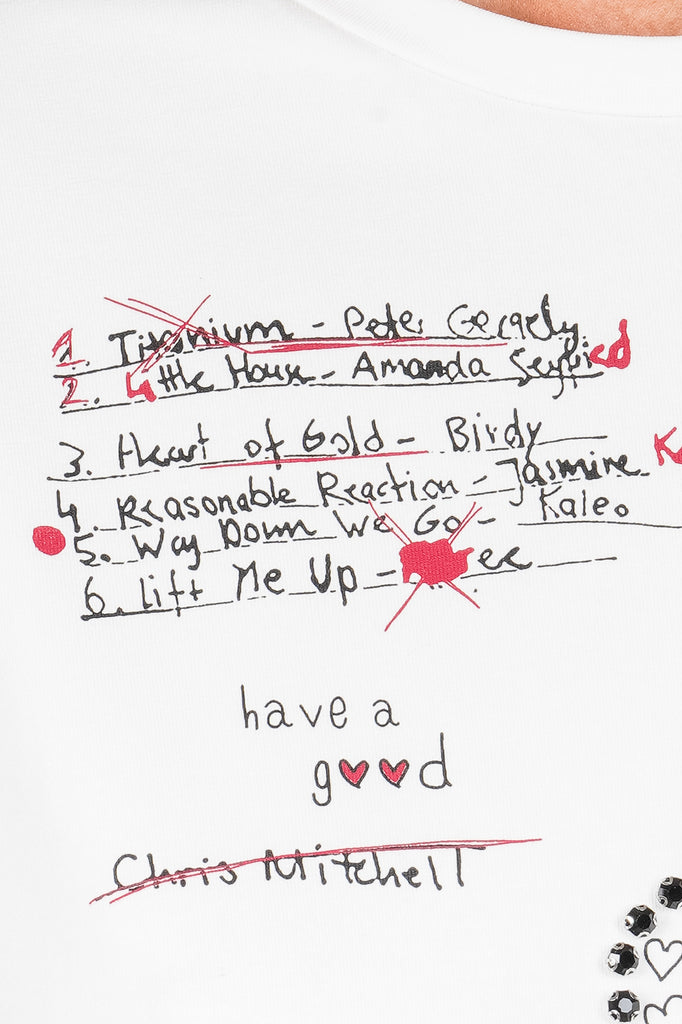 1. Titanium - Peter Gergely
2. Little House - Amanda Seyfried
3. Heart of Gold - Birdy
4. Reasonable Reaction - Jasmine
5. Way Down We Go - Kaleo
6. Lift Me Up - ee
have a
good
Chris Mitchell